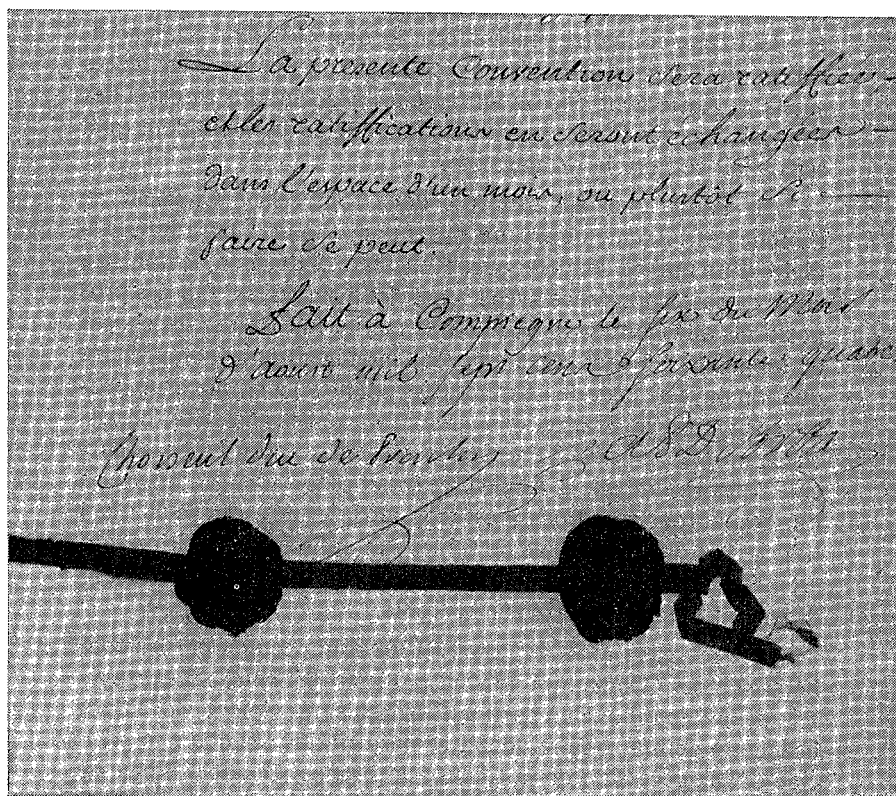 La presente Convention sera ratiffiée,
et les ratiffications en seront échangées
dans l'espace d'un mois, ou plustôt si
faire se peut.
Fait à Compiegne le six du Mois
d'aoust mil sept cent soixante quatre
Choiseul duc de Praslin